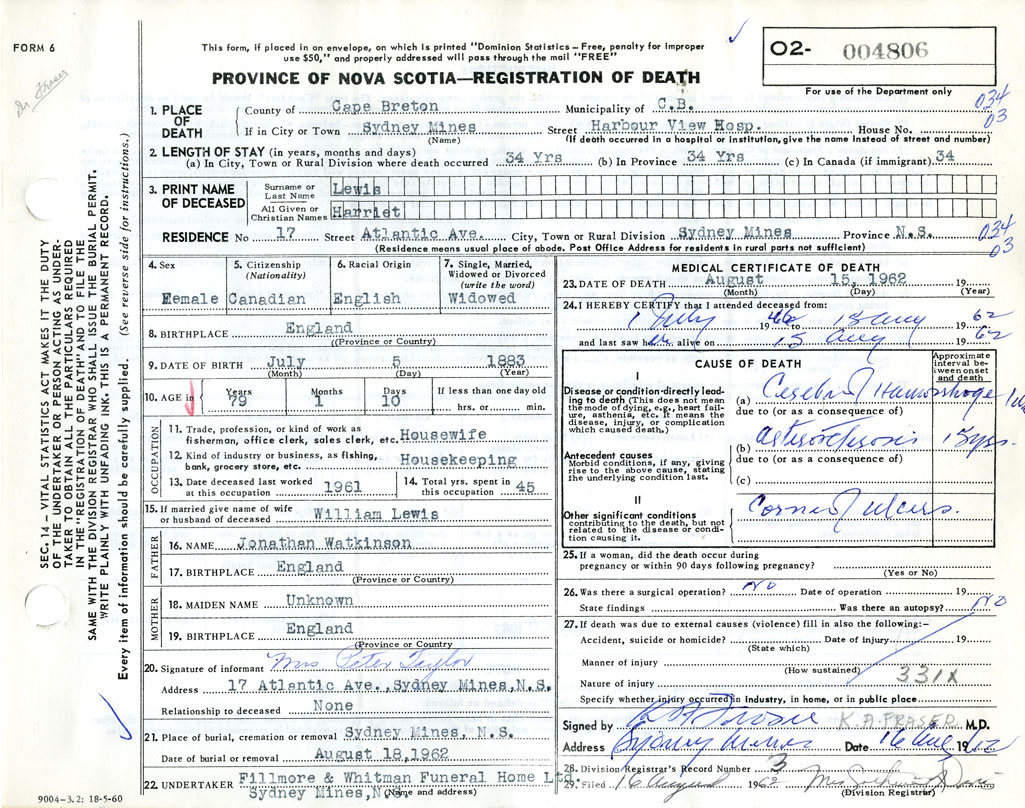 FORM 6
This form, if placed in an envelope, on which is printed "Dominion Statistics - Free, penalty for improper
use $50," and properly addressed will pass through the mail "FREE"
O2- 004806
For use of the Department only
Dr Fraser
PROVINCE OF NOVA SCOTIA—REGISTRATION OF DEATH
034
03
1. PLACE OF DEATH
County of Cape Breton Municipality of C.B.
If in City or Town Sydney Mines Street Harbour View Hosp. House No.
(Name) (If death occurred in a hospital or institution, give the name instead of street and number)
2. LENGTH OF STAY (in years, months and days)
(a) In City, Town or Rural Division where death occurred 34 Yrs (b) In Province 34 Yrs (c) In Canada (if immigrant) 34
3. PRINT NAME OF DECEASED
Surname or Last Name Lewis
All Given or Christian Names Harriet
RESIDENCE No 17 Street Atlantic Ave. City, Town or Rural Division Sydney Mines Province N.S.
(Residence means usual place of abode. Post Office Address for residents in rural parts not sufficient)
034
03
4. Sex
Female
5. Citizenship (Nationality)
Canadian
6. Racial Origin
English
7. Single, Married, Widowed or Divorced (write the word)
Widowed
8. BIRTHPLACE England
(Province or Country)
9. DATE OF BIRTH July 5 1883
(Month) (Day) (Year)
10. AGE in
Years 79 Months 1 Days 10 If less than one day old
hrs. or min.
OCCUPATION
11. Trade, profession, or kind of work as
fisherman, office clerk, sales clerk, etc. Housewife
12. Kind of industry or business, as fishing,
bank, grocery store, etc. Housekeeping
13. Date deceased last worked
at this occupation 1961
14. Total yrs. spent in
this occupation 45
15. If married give name of wife
or husband of deceased William Lewis
FATHER
16. NAME Jonathan Watkinson
17. BIRTHPLACE England
(Province or Country)
MOTHER
18. MAIDEN NAME Unknown
19. BIRTHPLACE England
(Province or Country)
20. Signature of informant Mrs Peter Taylor
Address 17 Atlantic Ave., Sydney Mines, N.S.
Relationship to deceased None
21. Place of burial, cremation or removal Sydney Mines, N.S.
Date of burial or removal August 18, 1962
22. UNDERTAKER Fillmore & Whitman Funeral Home Ltd.
Sydney Mines, N.S.
(Name and address)
MEDICAL CERTIFICATE OF DEATH
23. DATE OF DEATH August 15, 1962 19
(Month) (Day) (Year)
24. I HEREBY CERTIFY that I attended deceased from:
1 July 1962 to 15 Aug 1962
and last saw her alive on 15 Aug 1962
CAUSE OF DEATH
Approximate interval between onset and death
I
Disease or condition directly leading to death (This does not mean
the mode of dying, e.g., heart failure, asthenia, etc. It means the
disease, injury, or complication
which caused death.)
(a) Cerebral Hemorrhage
due to (or as a consequence of)
(b) 15 yrs.
due to (or as a consequence of)
(c)
Antecedent causes
Morbid conditions, if any, giving
rise to the above cause, stating
the underlying condition last.
II
Other significant conditions
contributing to the death, but not
related to the disease or condition causing it.
Corneal Ulcers.
25. If a woman, did the death occur during
pregnancy or within 90 days following pregnancy?
(Yes or No)
26. Was there a surgical operation? No Date of operation 19
State findings Was there an autopsy? No
27. If death was due to external causes (violence) fill in also the following:-
Accident, suicide or homicide? Date of injury 19
(State which)
Manner of injury
(How sustained)
Nature of injury 331X
Specify whether injury occurred in industry, in home, or in public place
Signed by K A Fraser K. A. FRASER M.D.
Address Sydney Mines Date 16 Aug 1962
28. Division Registrar's Record Number 3
29. Filed 16 August 1962
(Division Registrar)
SEC. 14 - VITAL STATISTICS ACT MAKES IT THE DUTY
OF THE UNDERTAKER OR PERSON ACTING AS UNDERTAKER TO OBTAIN ALL THE PARTICULARS REQUIRED
IN THE "REGISTRATION OF DEATH" AND TO FILE THE
SAME WITH THE DIVISION REGISTRAR WHO SHALL ISSUE THE BURIAL PERMIT.
WRITE PLAINLY WITH UNFADING INK. THIS IS A PERMANENT RECORD.
Every item of information should be carefully supplied. (See reverse side for instructions.)
9004-3.2: 18-5-60